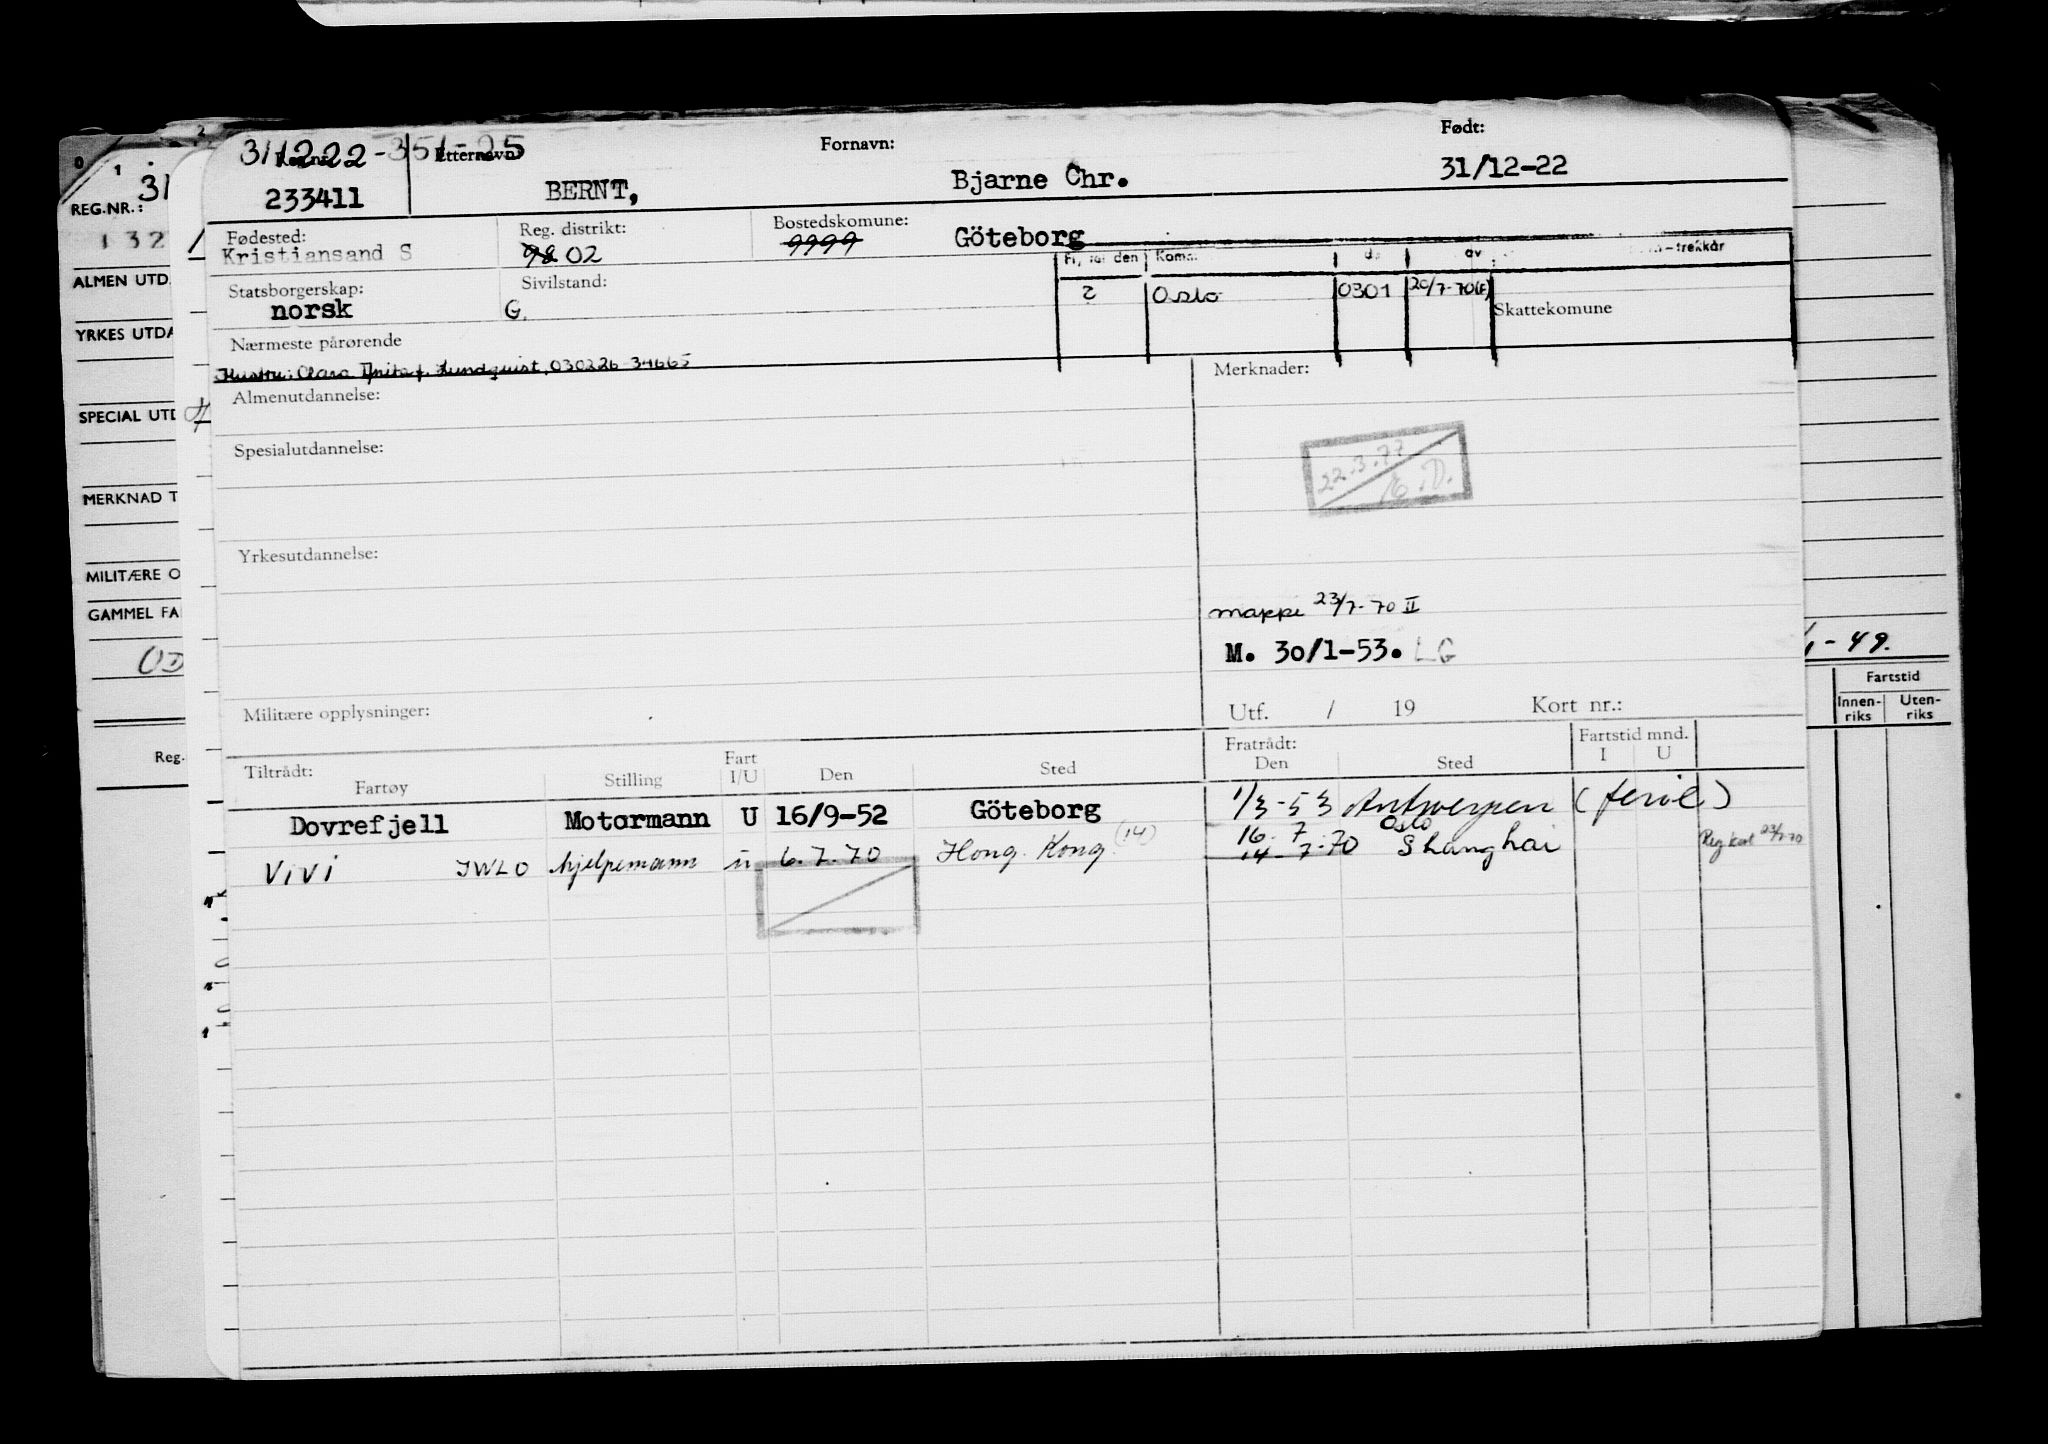 311222-351-25
Etternavn:
Fornavn:
Født:
233411
BERNT,
Bjarne Chr.
31/12-22
Fødested:
Reg. distrikt:
Bostedskomune:
Kristiansand S
98 02
9999
Göteborg
Statsborgerskap:
Sivilstand:
norsk
G.
2 Oslo 0301 20/7-70(F)
den
Kom.
av
-trekkår
Skattekomune
Nærmeste pårørende
Hustru: Clara Anita f. Lundquist, 030226-34665
Almenutdannelse:
Merknader:
Spesialutdannelse:
22.3.77
Yrkesutdannelse:
mappe 23/7-70 II
M. 30/1-53. LG
Militære opplysninger:
Utf. / 19 Kort nr.:
Tiltrådt:
Fratrådt:
Fartstid mnd.
Fartøy Stilling Fart I/U Den Sted Den Sted I U
Dovrefjell Motormann U 16/9-52 Göteborg 1/3-53 Antwerpen (ferie)
16. 7 Oslo
Vivi JWLO hjelpemann u 6.7.70 Hong Kong (14) 14-7-70 Shanghai Reg kort 23/7-70
0 1 2
31
REG.NR.:
132
ALMEN UTD.
YRKES UTDA
SPECIAL UTD
MERKNAD T
MILITÆRE O
GAMMEL FA
Reg.
-49.
Fartstid
Innen-riks
Uten-riks